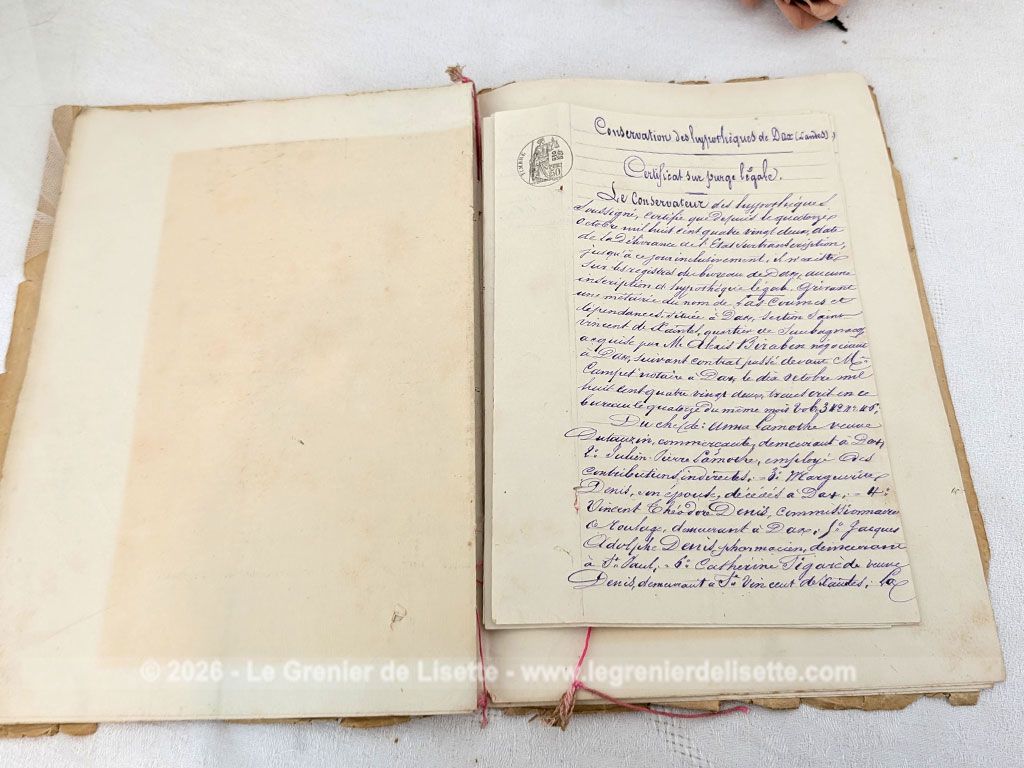 Conservation des hypothèques de Dax (Landes)
Certificat sur purge légale.
TIMBRE
50
Le Conservateur des hypothèques
soussigné, certifie que depuis le quatorze
octobre mil huit cent quatre vingt deux, date
de la délivrance de l'Etat sur transcription,
jusqu'à ce jour inclusivement, il n'existe
sur les registres du bureau de Dax, aucune
inscription d'hypothèque légale. Grévant
une métairie du nom de Las Coumes et
dépendances, située à Dax, section Saint
vincent de Xaintes, quartier de
acquise par Mr Alexis Biraben négociant
à Dax, suivant contrat passé devant Me
Campet notaire à Dax, le dix octobre mil
huit cent quatre vingt deux, transcrit en ce
bureau le quatorze du même mois Vol. 342 n°
Du chef de: Anna Lamothe veuve
Dutauzin, commerçante, demeurant à Dax,
2° Julien Pierre Lamothe, employé des
contributions indirectes, = 3° Marguerite
Denis, son épouse, décédés à Dax, = 4°
Vincent Théodore Denis, commissionnaire
de roulage, demeurant à Dax, 5° Jacques
Adolphe Denis, pharmacien, demeurant
à St Paul, = 6° Catherine veuve
Denis, demeurant à St Vincent de Xaintes,
© 2026 - Le Grenier de Lisette - www.legrenierdelisette.com